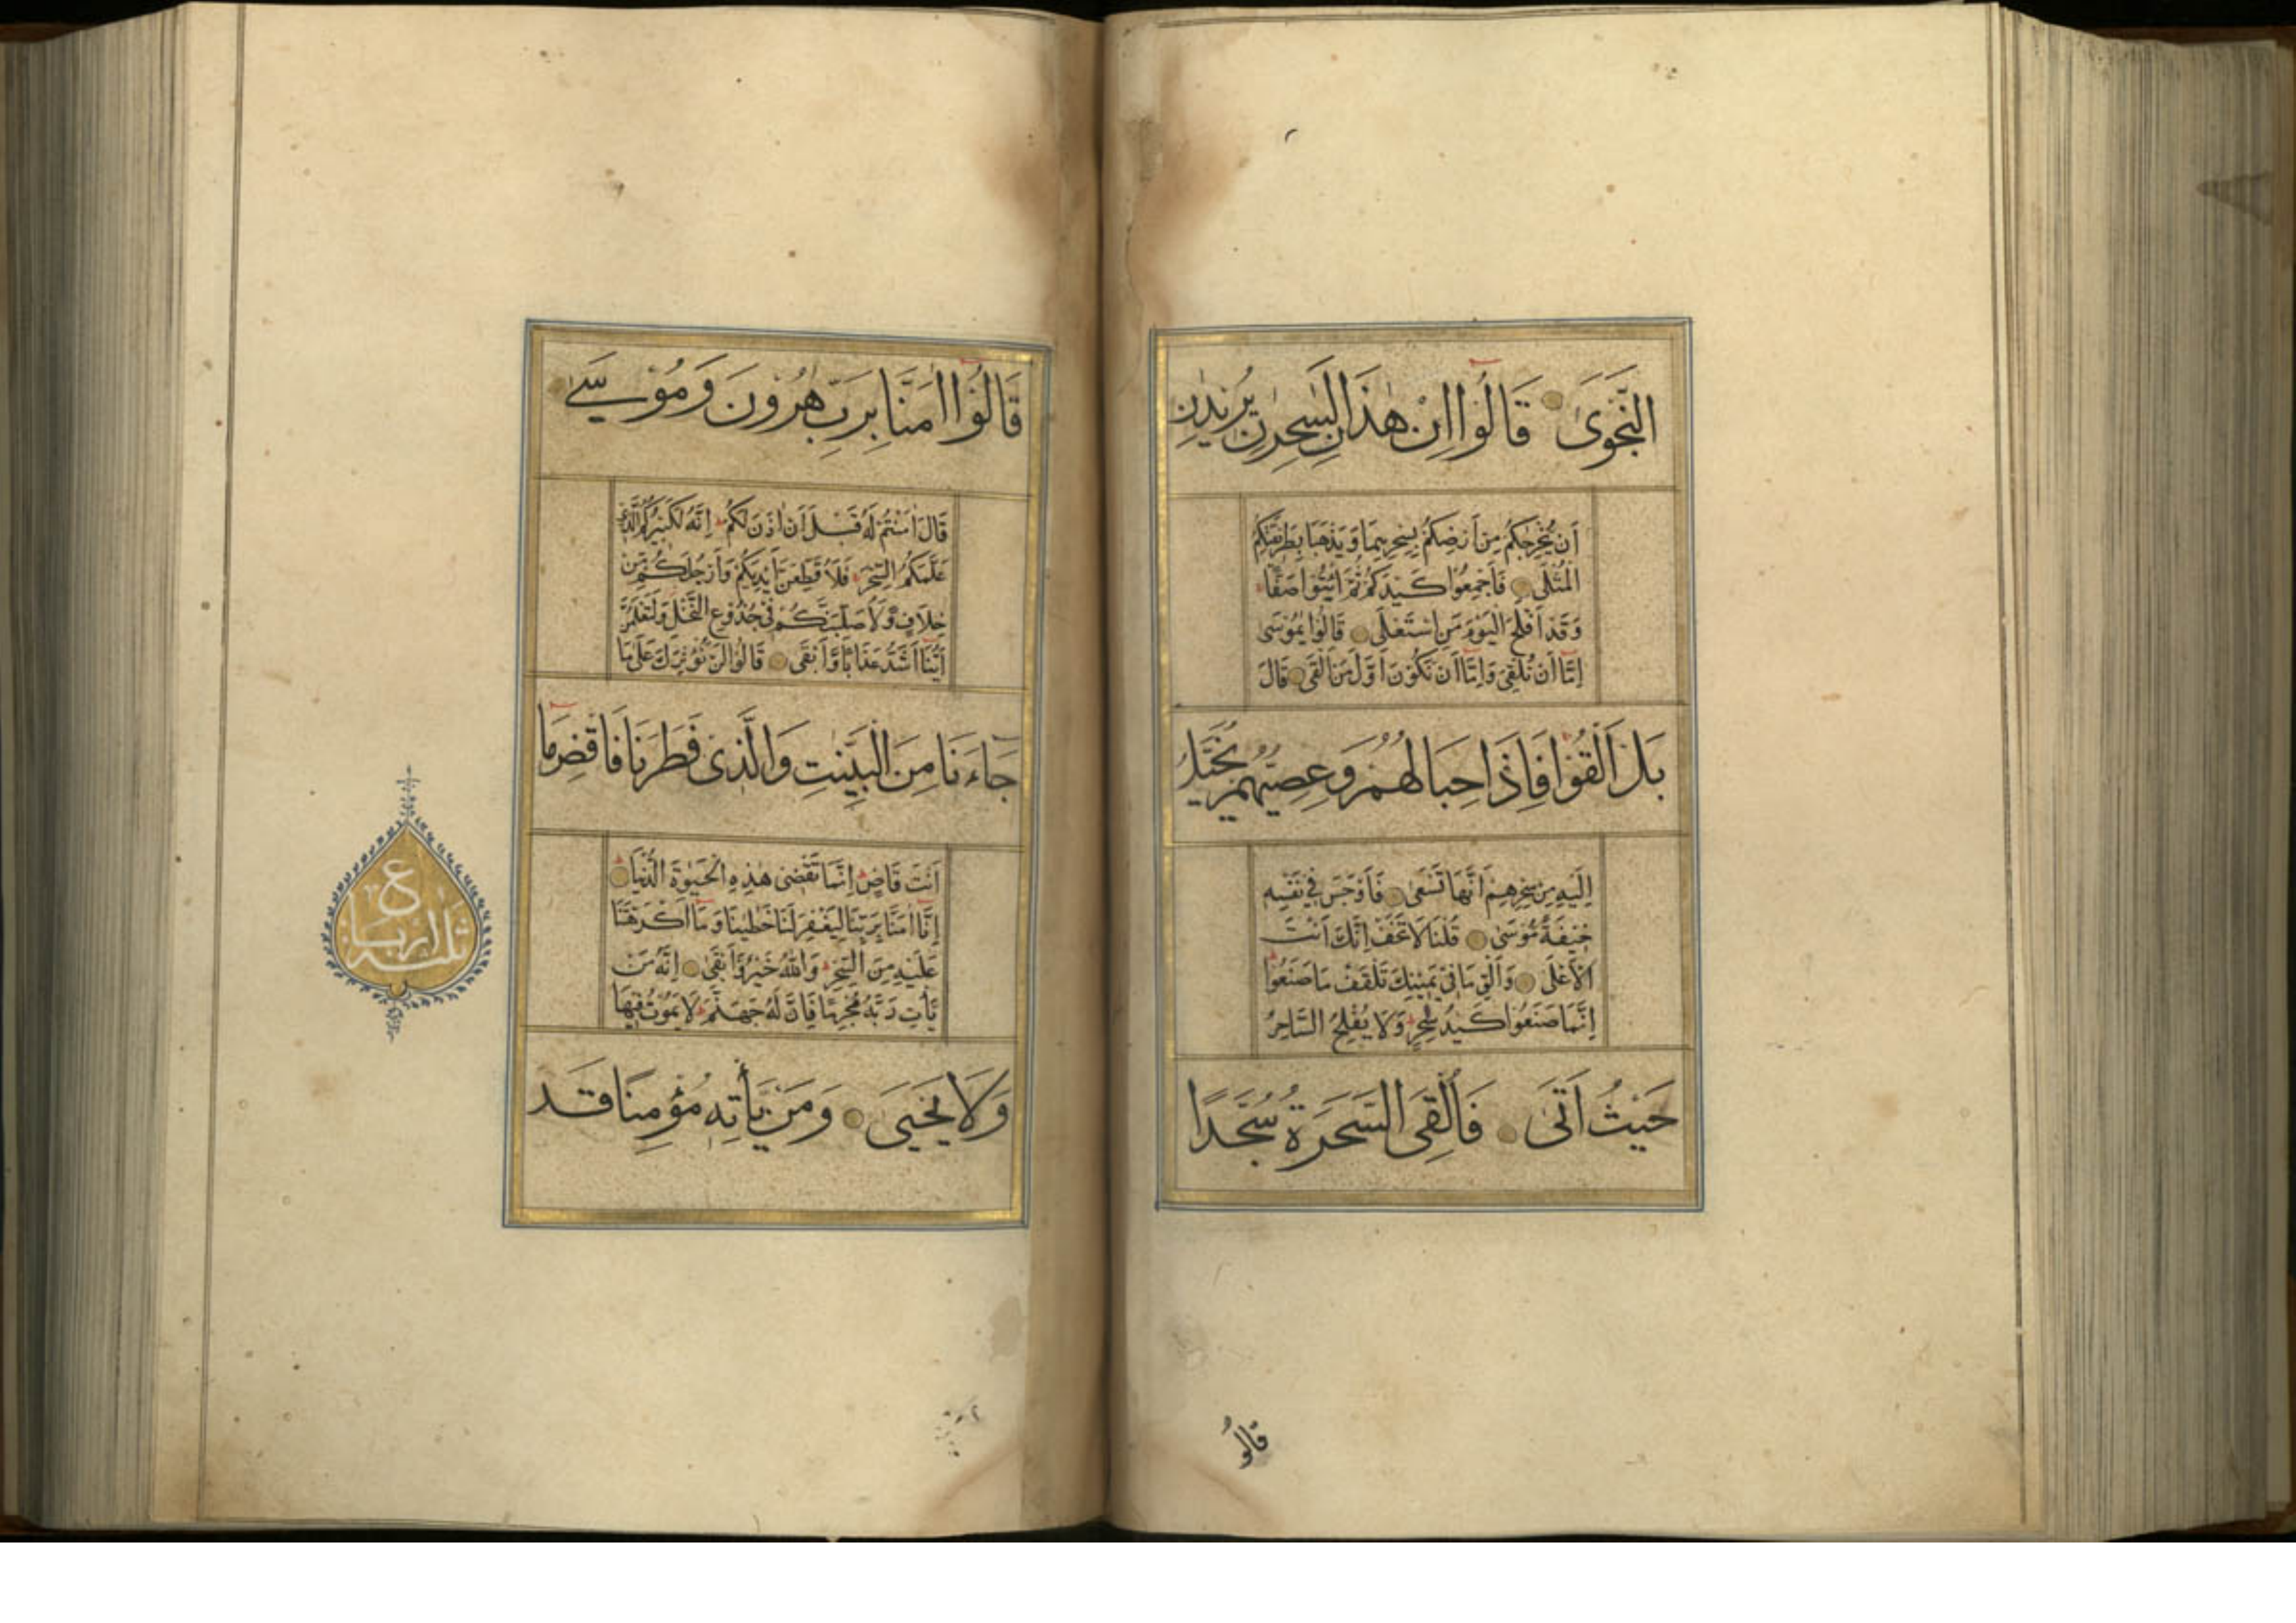 النَّجْوَىٰ قَالُوا اِنْ هٰذَانِ لَسٰحِرٰنِ يُرِيْدٰنِ
اَنْ يُخْرِجٰكُمْ مِنْ اَرْضِكُمْ بِسِحْرِهِمَا وَيَذْهَبَا بِطَرِيْقَتِكُمُ
الْمُثْلٰى فَاَجْمِعُوْا كَيْدَكُمْ ثُمَّ ائْتُوْا صَفًّا
وَقَدْ اَفْلَحَ الْيَوْمَ مَنِ اسْتَعْلٰى قَالُوْا يٰمُوْسٰى
اِمَّا اَنْ تُلْقِىَ وَاِمَّا اَنْ نَكُوْنَ اَوَّلَ مَنْ اَلْقٰى قَالَ
بَلْ اَلْقُوْا فَاِذَا حِبَالُهُمْ وَعِصِيُّهُمْ يُخَيَّلُ
اِلَيْهِ مِنْ سِحْرِهِمْ اَنَّهَا تَسْعٰى فَاَوْجَسَ فِيْ نَفْسِهٖ
خِيْفَةً مُوْسٰى قُلْنَا لَا تَخَفْ اِنَّكَ اَنْتَ
الْاَعْلٰى وَاَلْقِ مَا فِيْ يَمِيْنِكَ تَلْقَفْ مَا صَنَعُوْا
اِنَّمَا صَنَعُوْا كَيْدُ سٰحِرٍ وَلَا يُفْلِحُ السَّاحِرُ
حَيْثُ اَتٰى فَاُلْقِىَ السَّحَرَةُ سُجَّدًا
قالوا
قَالُوْا اٰمَنَّا بِرَبِّ هٰرُوْنَ وَمُوْسٰى
قَالَ اٰمَنْتُمْ لَهُ قَبْلَ اَنْ اٰذَنَ لَكُمْ اِنَّهُ لَكَبِيْرُكُمُ الَّذِيْ
عَلَّمَكُمُ السِّحْرَ فَلَاُقَطِّعَنَّ اَيْدِيَكُمْ وَاَرْجُلَكُمْ مِنْ
خِلَافٍ وَلَاُصَلِّبَنَّكُمْ فِيْ جُذُوْعِ النَّخْلِ وَلَتَعْلَمُنَّ
اَيُّنَا اَشَدُّ عَذَابًا وَاَبْقٰى قَالُوْا لَنْ نُؤْثِرَكَ عَلٰى مَا
جَاءَنَا مِنَ الْبَيِّنٰتِ وَالَّذِىْ فَطَرَنَا فَاقْضِ مَا
اَنْتَ قَاضٍ اِنَّمَا تَقْضِىْ هٰذِهِ الْحَيٰوةَ الدُّنْيَا
اِنَّا اٰمَنَّا بِرَبِّنَا لِيَغْفِرَ لَنَا خَطٰيٰنَا وَمَا اَكْرَهْتَنَا
عَلَيْهِ مِنَ السِّحْرِ وَاللّٰهُ خَيْرٌ وَاَبْقٰى اِنَّهُ مَنْ
يَأْتِ رَبَّهُ مُجْرِمًا فَاِنَّ لَهُ جَهَنَّمَ لَا يَمُوْتُ فِيْهَا
وَلَا يَحْيٰى وَمَنْ يَأْتِهٖ مُؤْمِنًا قَدْ
ع
ثلثة ارباع